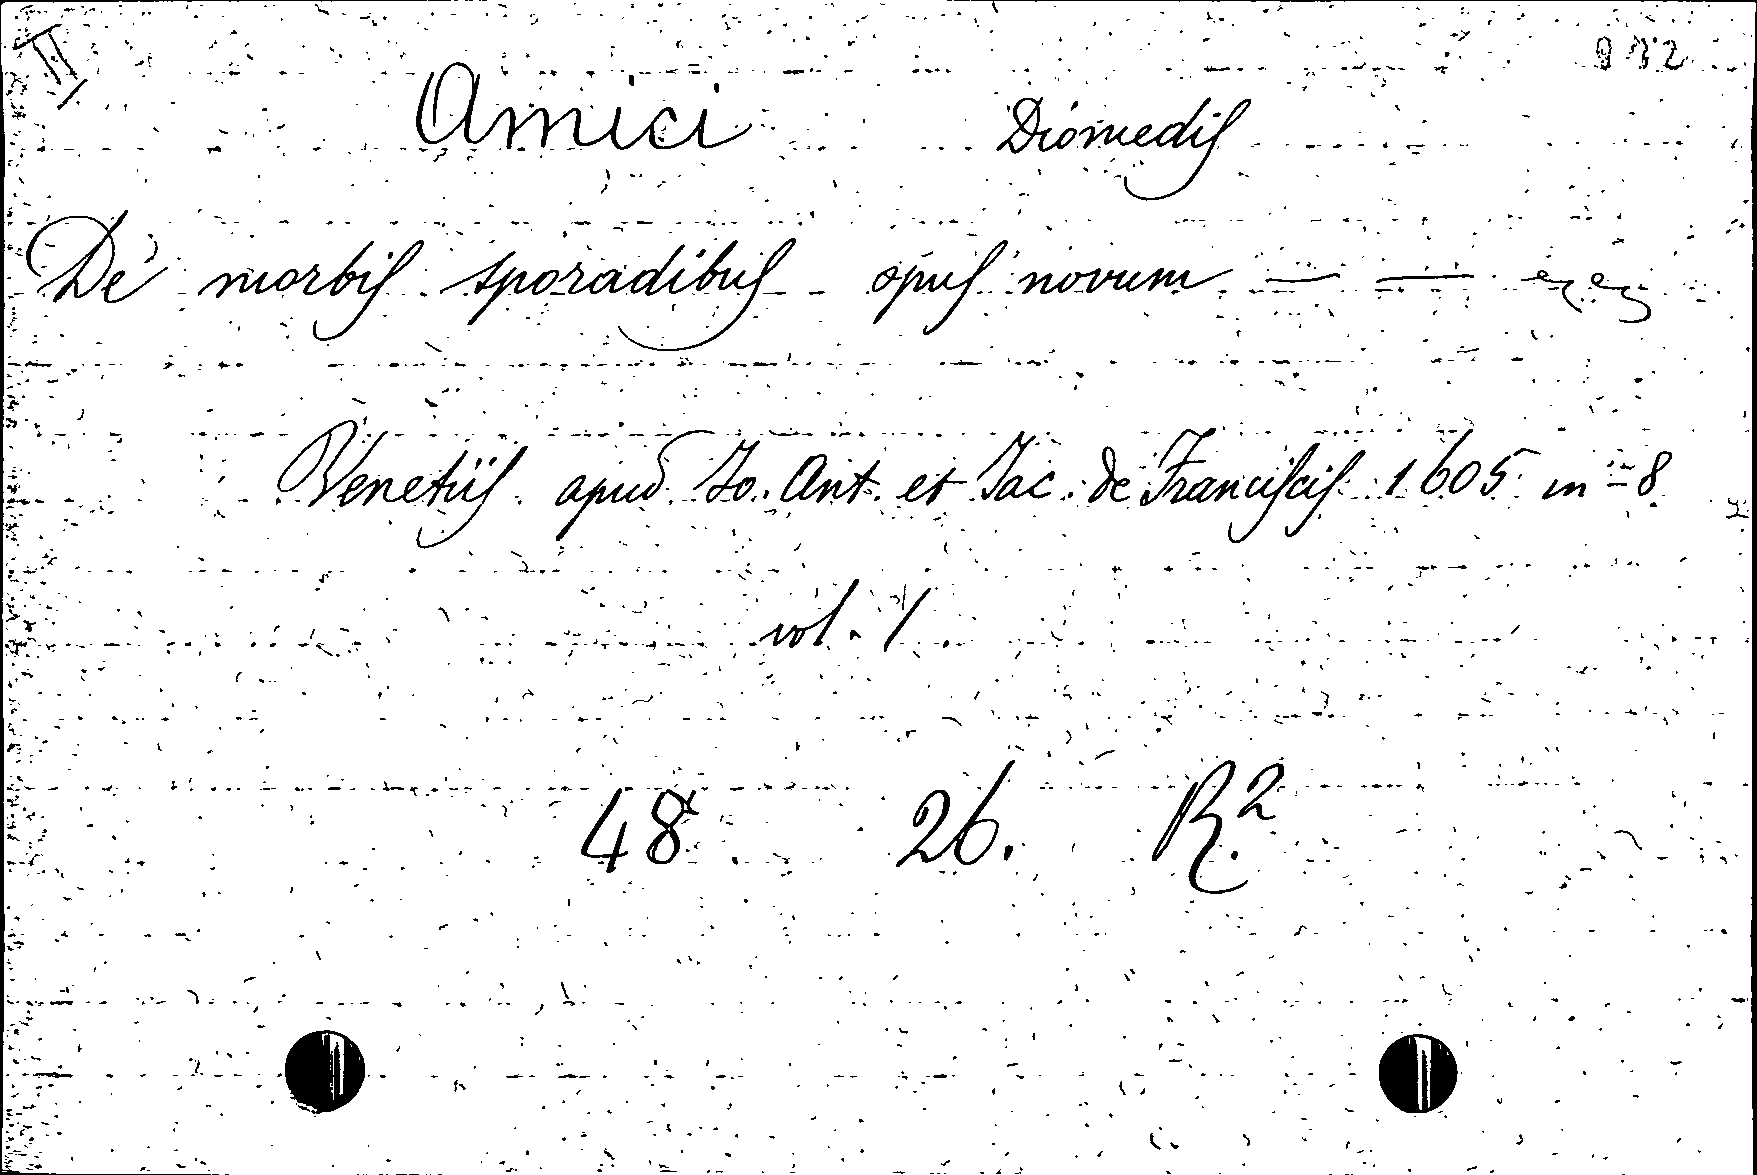 II
Amici Diomedis
De morbis sporadibus opus novum — —
Venetiis apud Jo. Ant. et Jac. de Franciscis 1605 in-8
vol. 1
48 26. R.2